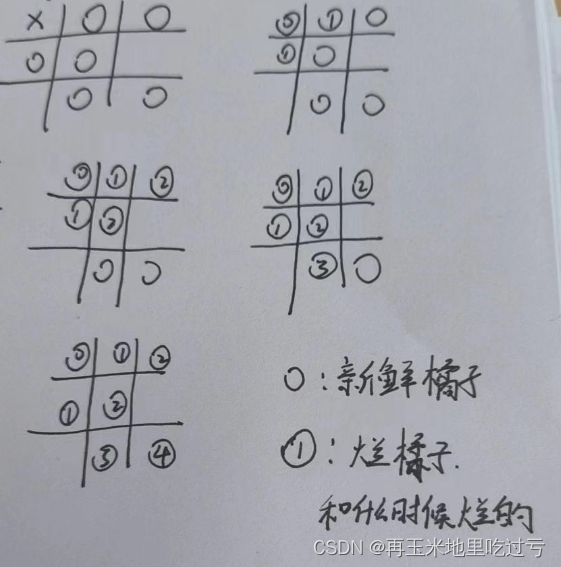 X O O O X O
O O ① O
O O O O
⓪ ① ② ⓪ ① ②
① ② ① ②
O O ③ O
⓪ ① ②
① ②
③ ④
O：新鲜橘子
①：烂橘子.
和什么时候烂的
CSDN @再玉米地里吃过亏